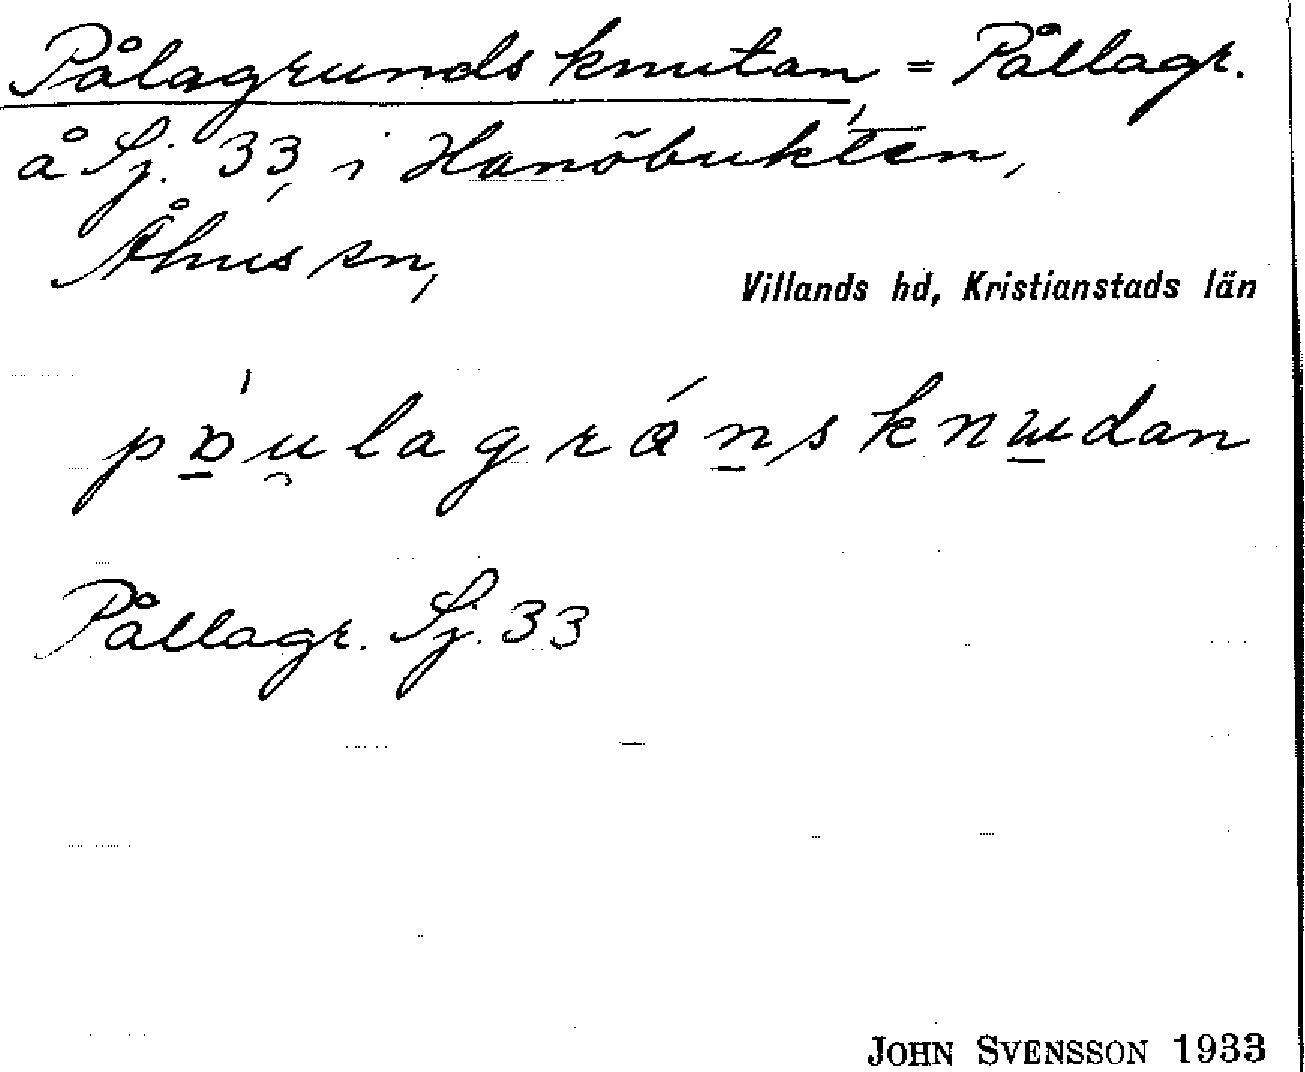 Pålagrundsknutan = Pållagr.
å Sj. 33, i Hanöbukten,
Åhus sn,
Villands hd, Kristianstads län
Pållagr. Sj. 33
JOHN SVENSSON 1933